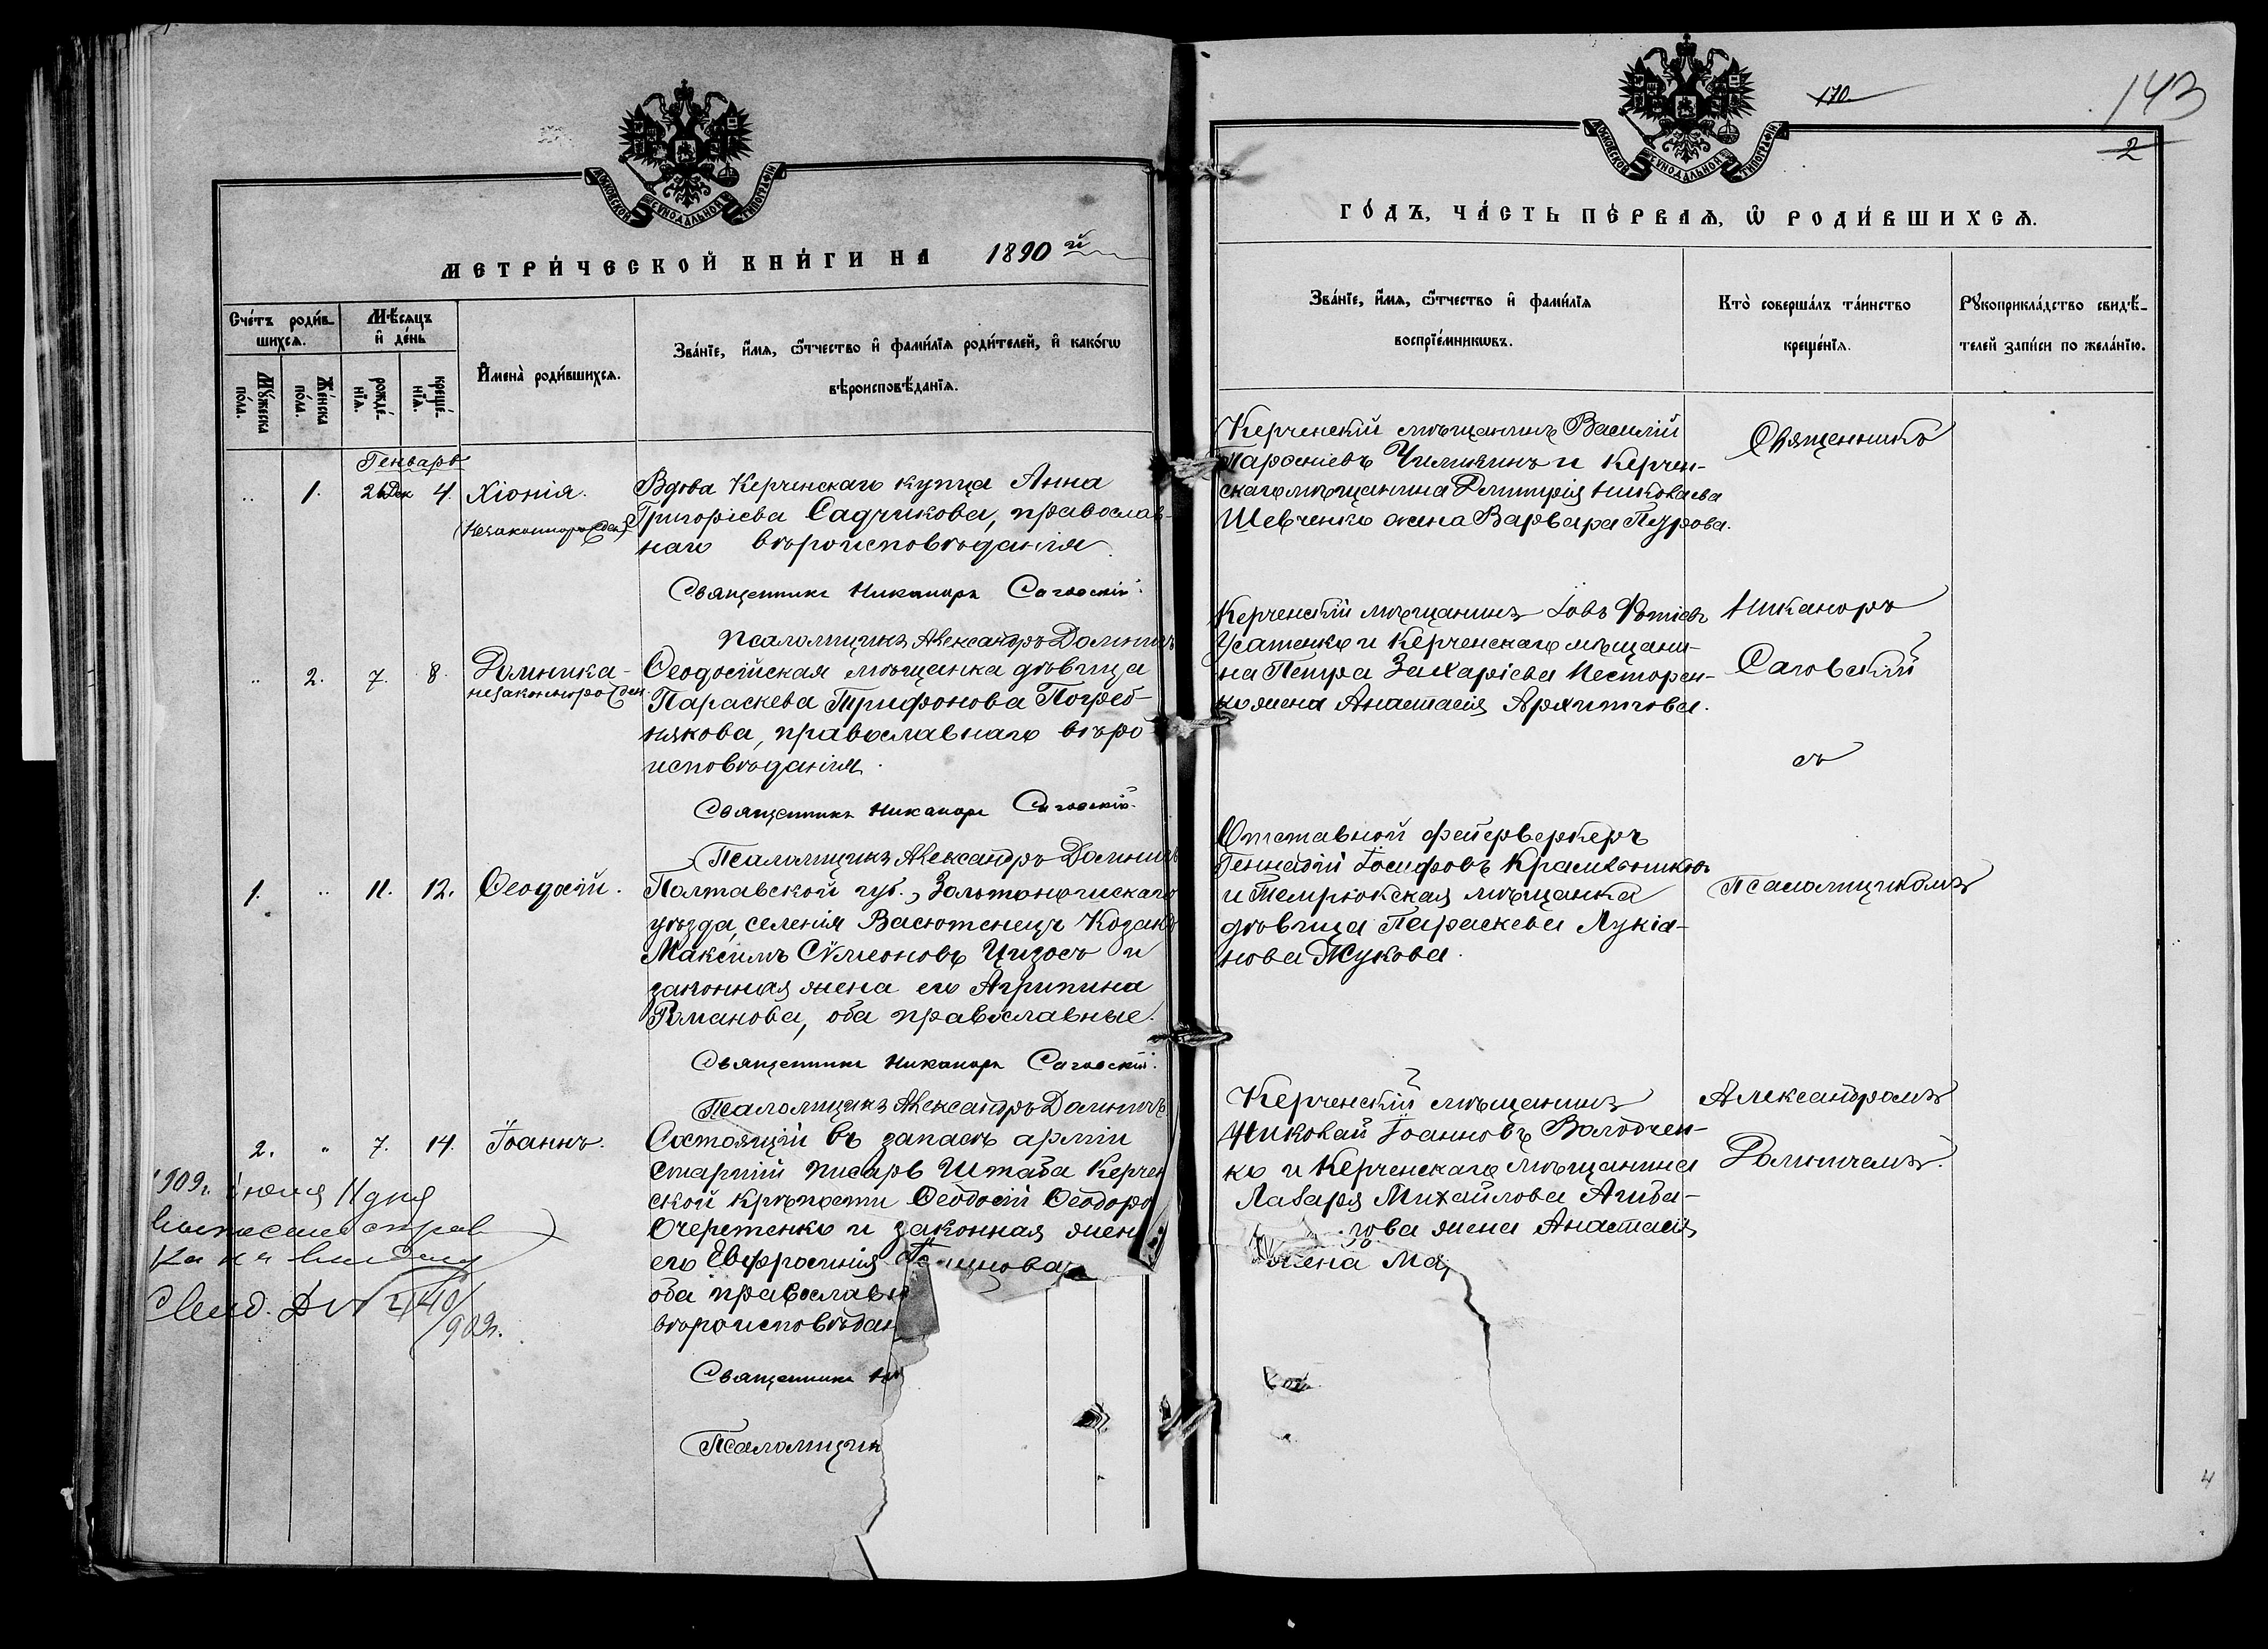 МОСКОВСКОЙ СѴНОДАЛЬНОЙ ТИПОГРАФІИ
МЕТРИ́ЧЕСКОЙ КНИ́ГИ НА 1890й
Сче́тъ роди́в-
шихсѧ.
Мѣ́сѧцъ
и҆ де́нь
Мꙋ́жеска
по́ла.
Же́нска
по́ла.
рожде́-
нїѧ.
креще́-
нїѧ.
И҆мена̀ роди́вшихсѧ.
Зва́нїе, и҆́мѧ, ѻ҆́тчество и҆ фами́лїѧ роди́телей, и҆ како́гѡ
вѣроисповѣ́данїѧ.
Генварь
1. 26 Дек 4. Хіонія.
(незаконнорожден.)
Вдова Керченскаго купца Анна
Григоріева Садчикова, православ-
наго вѣроисповѣданія
Священникъ Никаноръ Саговскій.
Псаломщикъ Александръ Долиничъ
2. 7. 8. Домника-
незаконнорожден.
Ѳеодосійская мѣщанка дѣвица
Параскева Трифонова Погреб-
някова, православнаго вѣро
исповѣданія.
Священникъ Никаноръ Саговскій.
Псаломщикъ Александръ Долиничъ
1. 11. 12. Ѳеодосій.
Полтавской губ., Золотоношскаго
уѣзда, селенія Васютенецъ Козакъ
Максимъ Сѵмеоновъ Цизось и
законная жена его Агрипина
Романова, оба православные.
Священникъ Никаноръ Саговскій.
Псаломщикъ Александръ Долиничъ
2. 7. 14. Іоаннъ.
Состоящій въ запасѣ арміи
старшій писарь Штаба Керчен
ской крѣпости Ѳеодосій Ѳеодоро
Очеретенко и законная жена
его Евфросинія
оба православн
вѣроисповѣдан
Священникъ Ни
Псаломщик
1909г. іюня 11 дня
выписана справ
ка
902г.
170
143
2
МОСКОВСКОЙ СѴНОДАЛЬНОЙ ТИПОГРАФІИ
ГО́ДЪ, ЧА́СТЬ ПЕ́РВАѦ, Ѡ҆ РОДИ́ВШИХСѦ.
Зва́нїе, и҆́мѧ, ѻ҆́тчество и҆ фами́лїѧ
воспрїе́мникѡвъ.
Кто̀ соверша́лъ та́инство
креще́нїѧ.
Рꙋкоприкла́дство свидѣ́-
телей за́писи по жела́нїю.
Керченскій мѣщанинъ Василій
Парѳеніевъ Чиликинъ и Керчен-
скаго мѣщанина Димитрія Николаева
Шевченко жена Варвара Петрова.
Керченскій мѣщанинъ Іовъ Фотіевъ
Усатенко и Керченскаго мѣщани-
на Петра Захаріева Несторен-
ко жена Анастасія Архипова.
Отставной фейерверкеръ
Геннадій Іосифовъ Красильниковъ
и Темрюкская мѣщанка
дѣвица Параскева Лукіа-
нова Жукова.
Керченскій мѣщанинъ
Николай Іоанновъ Володчен-
ко и Керченскаго мѣщанина
Лазаря Михайлова Агиба-
лова жена Анастасія
жена Ма
Священникъ
Никаноръ
Саговскій
съ
Псаломщикомъ
Александромъ
Долиничемъ.
4